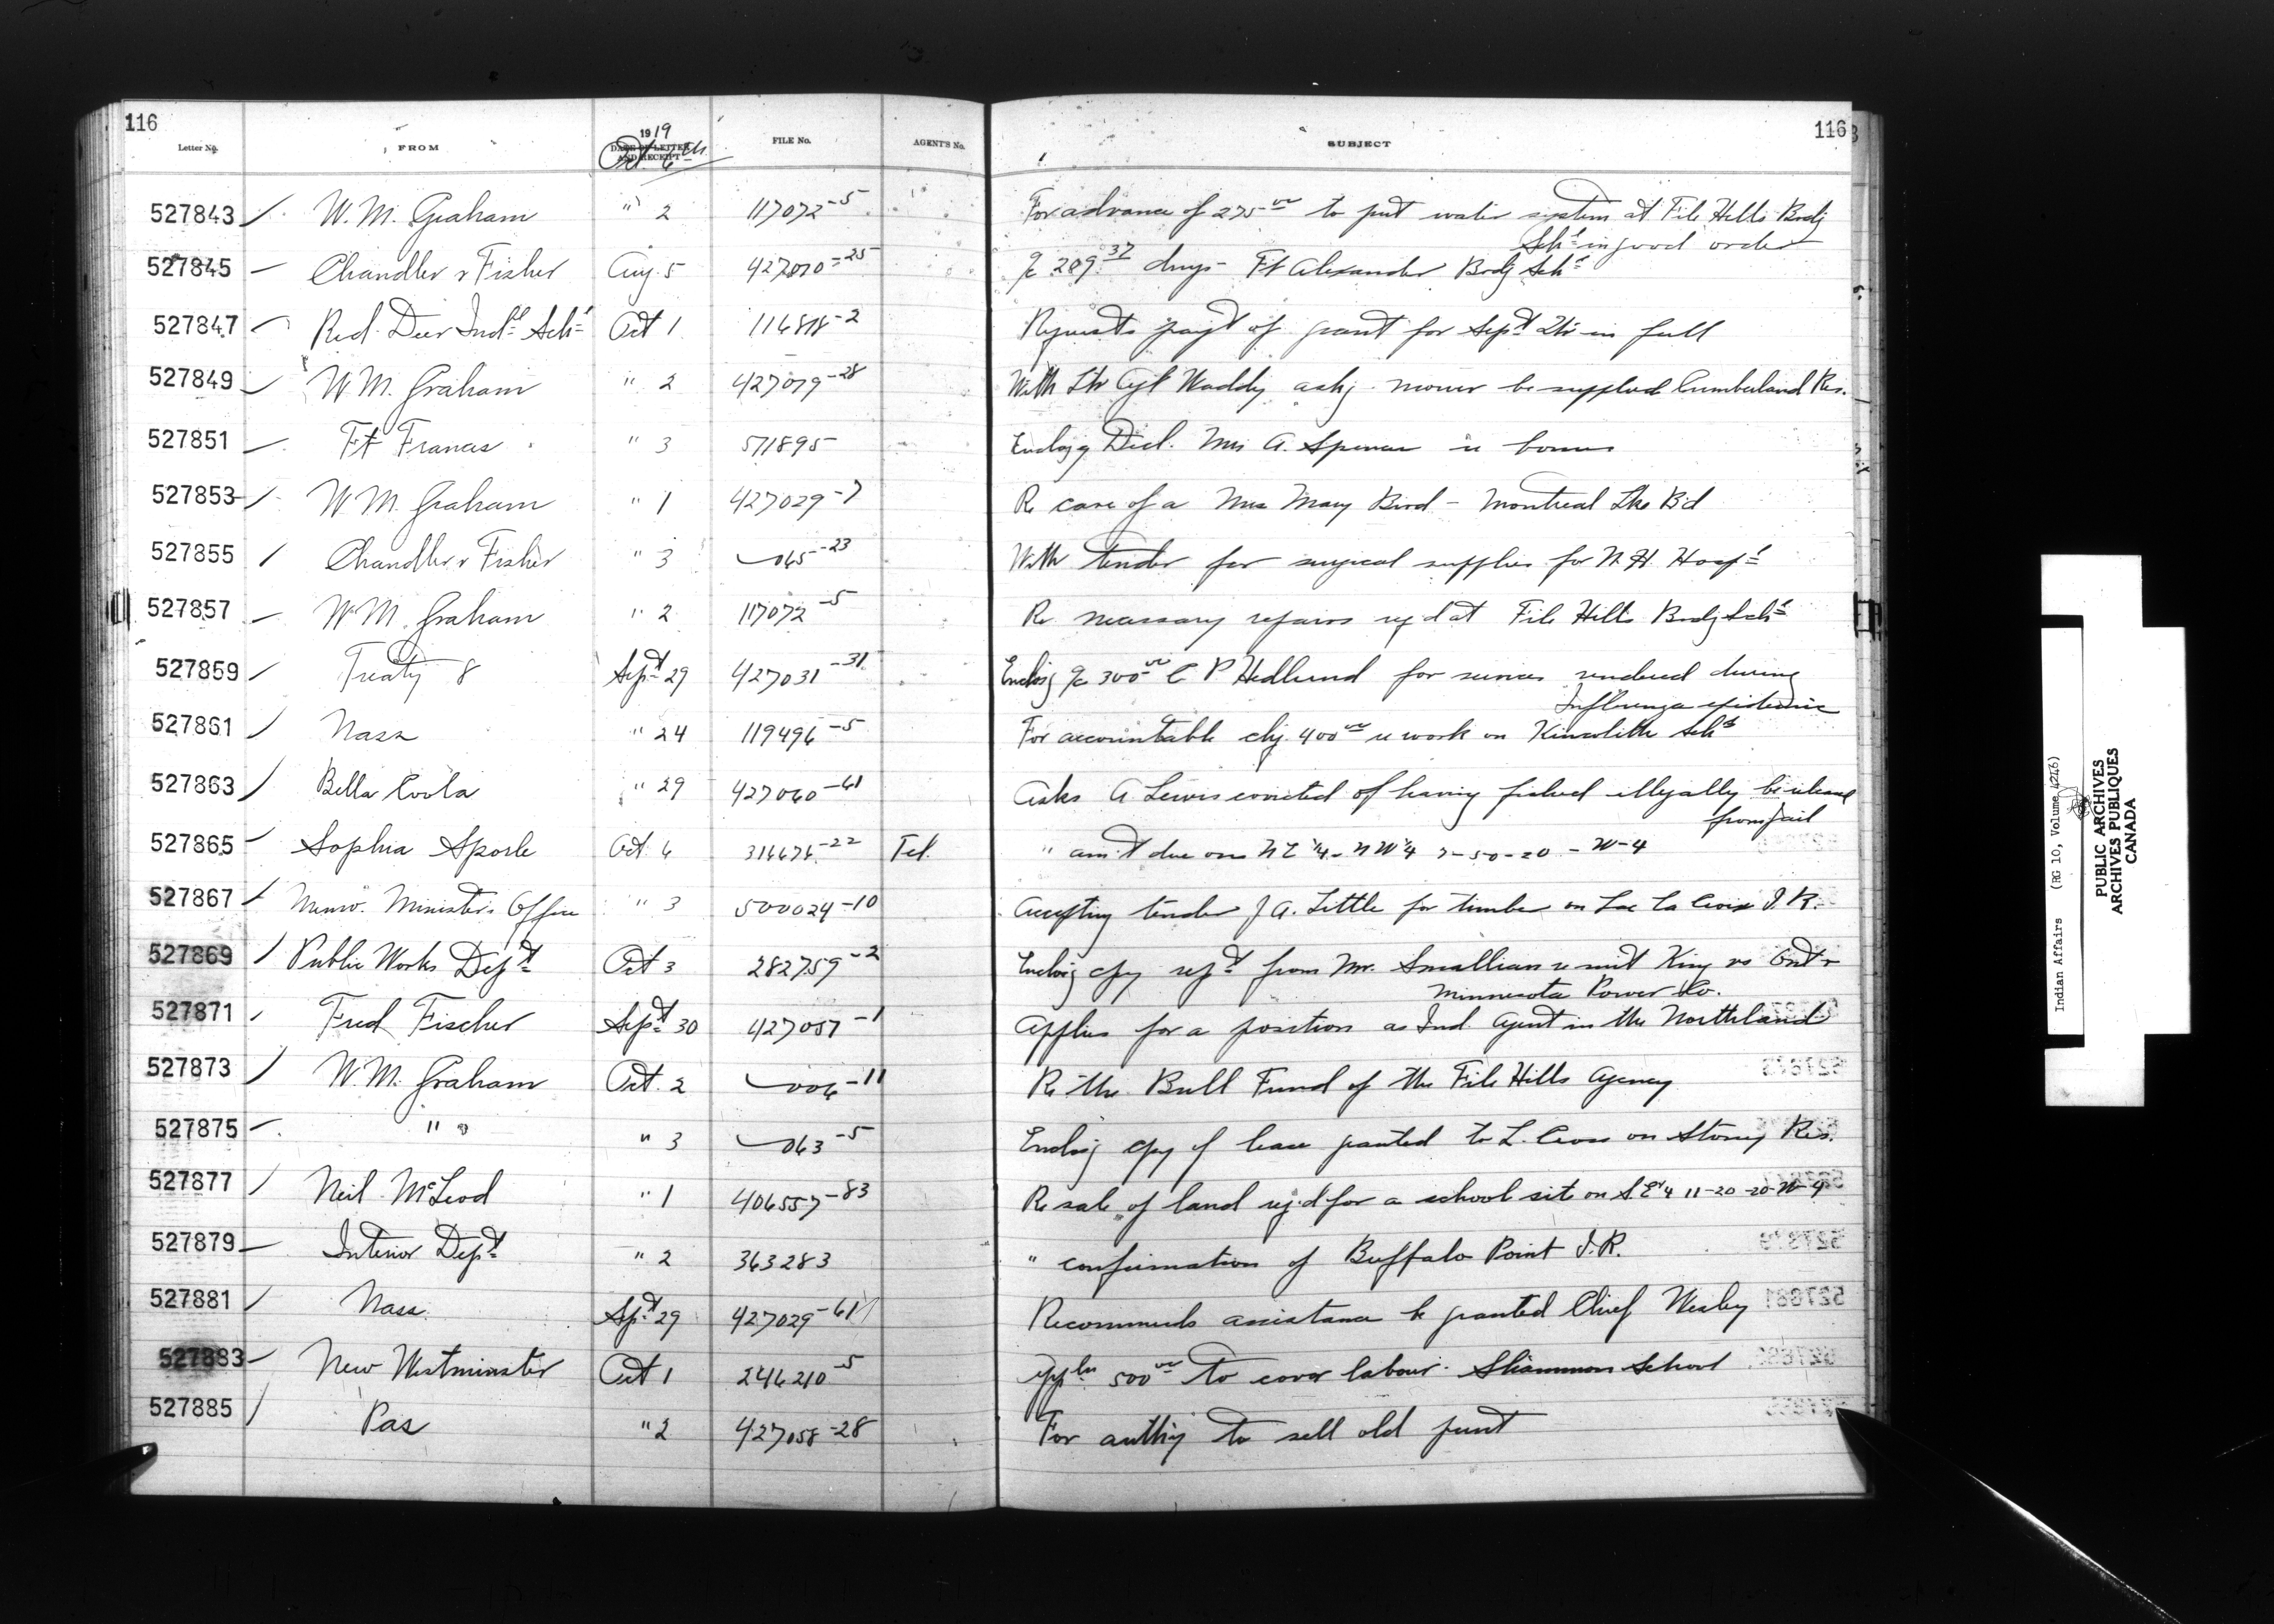 116
116
Letter No.
FROM
1919
DATE OF LETTER AND RECEIPT
Oct. 6th
FILE No.
AGENT'S No.
SUBJECT
527843 W. M. Graham " 2 117072-5 For advance of 275.00 to put water system at File Hills Brdg
Schl in good order
527845 Chandler & Fisher Aug. 5 427010-25 a/c 289.37 drugs - Ft Alexander Brdg Schl
527847 Red Deer Indl Schl Oct 1 116818-2 Requests payt of grant for Sept Qtr in full
527849 W. M. Graham " 2 427019-28 With Ltr Agt Waddy askg mower be supplied Cumberland Res.
527851 Ft Frances " 3 571895 Enclosg Decl. Mrs A. Spencer re bonus
527853 W. M. Graham " 1 427029-7 Re care of a Mrs Mary Bird - Montreal Lke Bd
527855 Chandler & Fisher " 3 065-23 With tender for surgical supplies for N. H. Hospl
527857 W. M. Graham " 2 117072-5 Re necessary repairs reqd at File Hills Brdg Schl
527859 Treaty 8 Sept 29 427031-31 Enclosg a/c 300.00 C P Hedlund for services rendered during
Influenza epidemic
527861 Nass " 24 119496-5 For accountable chq. 400.00 re work on Kincolith Schl
527863 Bella Coola " 29 427060-61 Asks A Lewis convicted of having fished illegally be released
from jail
527865 Sophia Sporle Oct. 6 314674-22 Tel. " am't due on N E 1/4 - N W 1/4 7-50-20 - W-4
527867 Memo. Minister's Office " 3 500024-10 Accepting tender J A. Little for timber on Lac La Croix I. R.
527869 Public Works Dept Oct 3 282759-2 Enclosg cpy rept from Mr. Smallian re suit King vs Ont &
Minnesota Power Co.
527871 Fred Fischer Sept 30 427057-1 Applies for a position as Ind. Agent in the Northland
527873 W. M. Graham Oct. 2 006-11 Re the Bull Fund of the File Hills Agency
527875 " " " 3 063-5 Enclosg cpy of lease granted to L. Cross on Stoney Res.
527877 Neil McLeod " 1 406557-83 Re sale of land reqd for a school site on S E 1/4 11-20-20-W-4
527879 Interior Dept " 2 363283 " confirmation of Buffalo Point I. R.
527881 Nass Sept 29 427029-61 Recommends assistance be granted Chief Wesley
527883 New Westminster Oct 1 246210-5 500.00 to cover labour - Sliammon School
527885 Pas " 2 427058-28 For authy to sell old punt
Indian Affairs (RG 10, Volume 4246)
PUBLIC ARCHIVES
ARCHIVES PUBLIQUES
CANADA